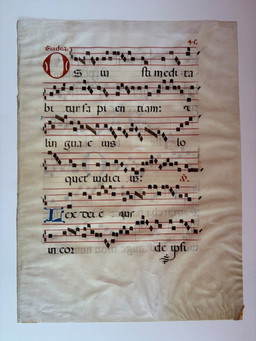 Gradua.
OS iu sti medi ta
bi tur sa pi en tiam: &
lin gua e ius lo
quet iudici um: ℣.
Lex dei e ius
in cor de ipsi